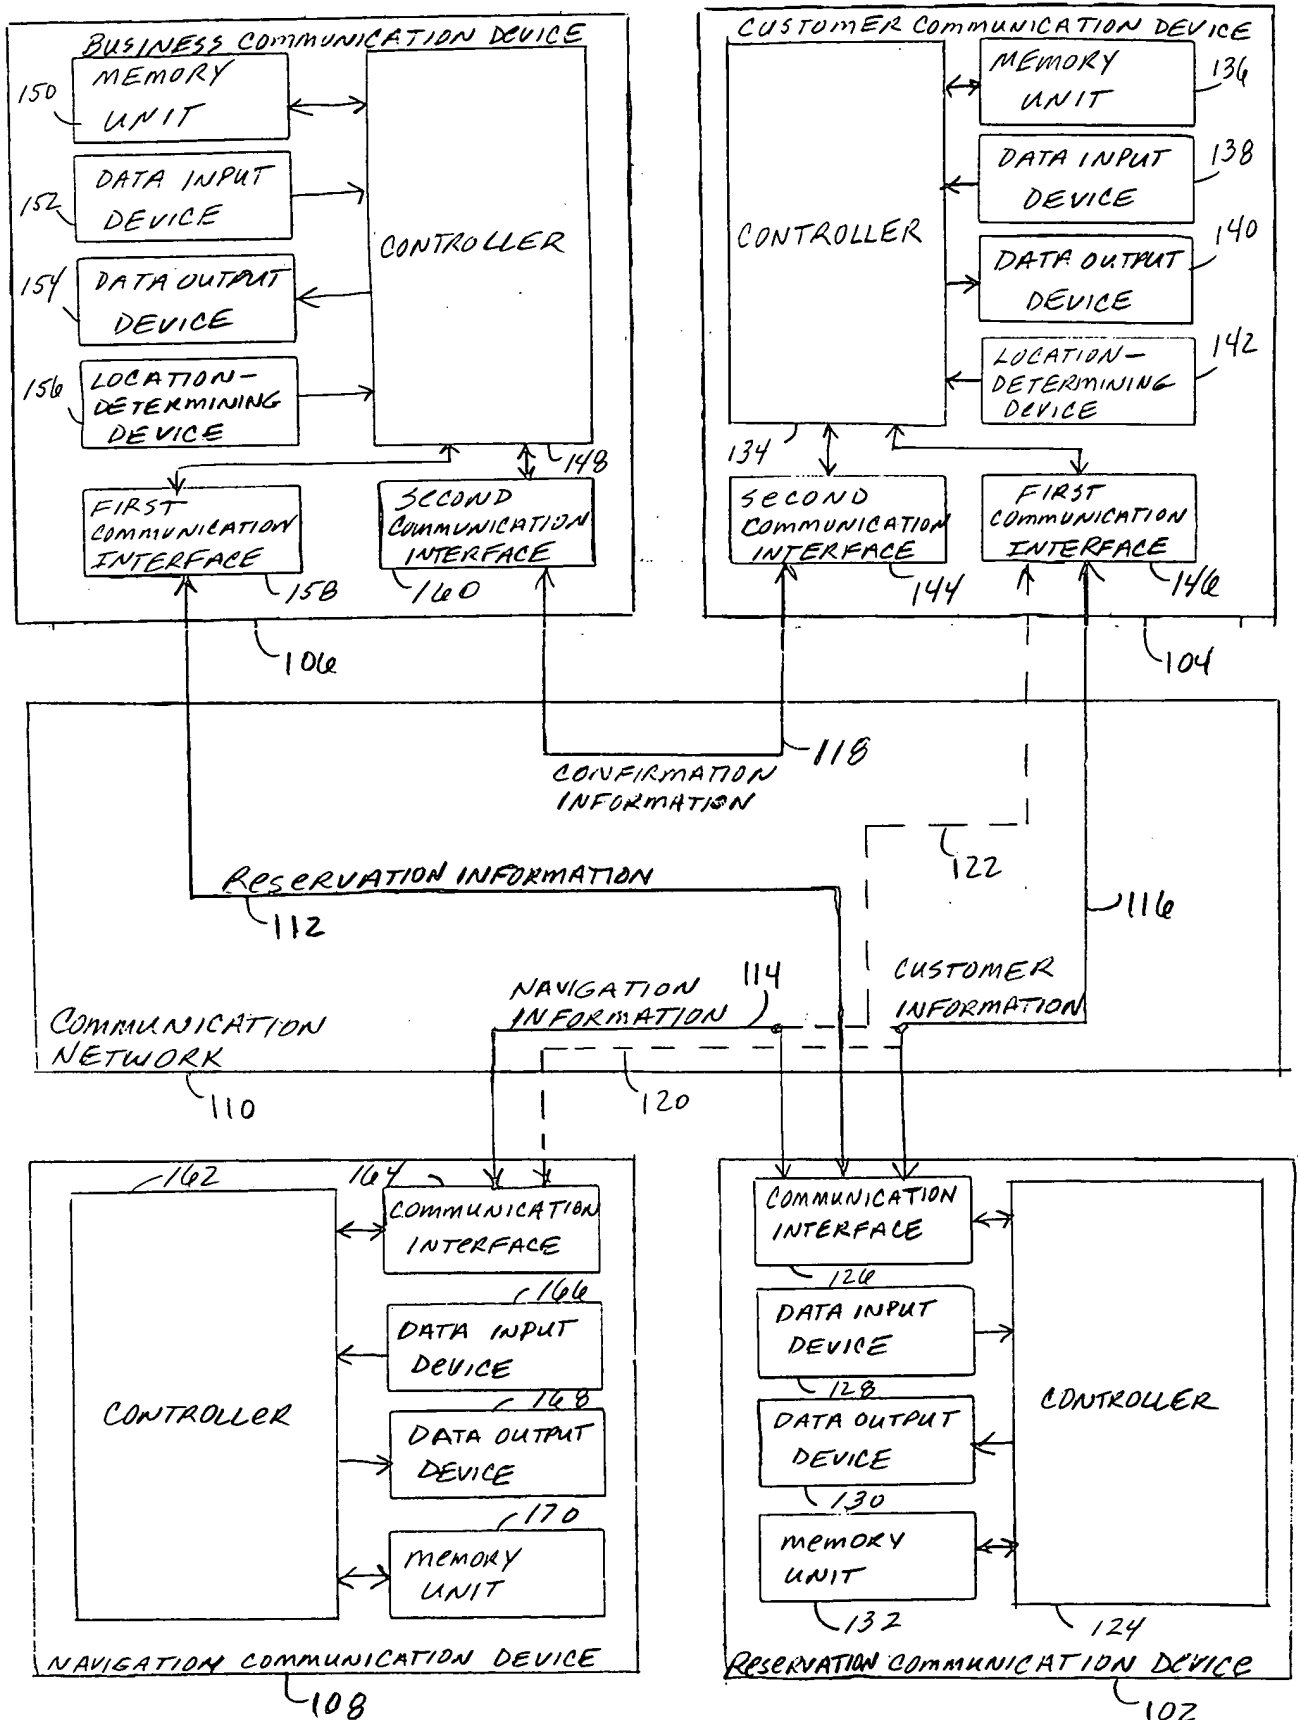 BUSINESS COMMUNICATION DEVICE
MEMORY
UNIT
150
DATA INPUT
DEVICE
152
DATA OUTPUT
DEVICE
154
LOCATION-
DETERMINING
DEVICE
156
CONTROLLER
148
FIRST
COMMUNICATION
INTERFACE
158
SECOND
COMMUNICATION
INTERFACE
160
106
CUSTOMER COMMUNICATION DEVICE
CONTROLLER
134
MEMORY
UNIT
136
DATA INPUT
DEVICE
138
DATA OUTPUT
DEVICE
140
LOCATION-
DETERMINING
DEVICE
142
SECOND
COMMUNICATION
INTERFACE
144
FIRST
COMMUNICATION
INTERFACE
146
104
118
CONFIRMATION
INFORMATION
122
RESERVATION INFORMATION
112
116
NAVIGATION
INFORMATION
114
CUSTOMER
INFORMATION
COMMUNICATION
NETWORK
110
120
162
CONTROLLER
164
COMMUNICATION
INTERFACE
166
DATA INPUT
DEVICE
168
DATA OUTPUT
DEVICE
170
MEMORY
UNIT
NAVIGATION COMMUNICATION DEVICE
108
COMMUNICATION
INTERFACE
126
DATA INPUT
DEVICE
128
DATA OUTPUT
DEVICE
130
MEMORY
UNIT
132
CONTROLLER
124
RESERVATION COMMUNICATION DEVICE
102